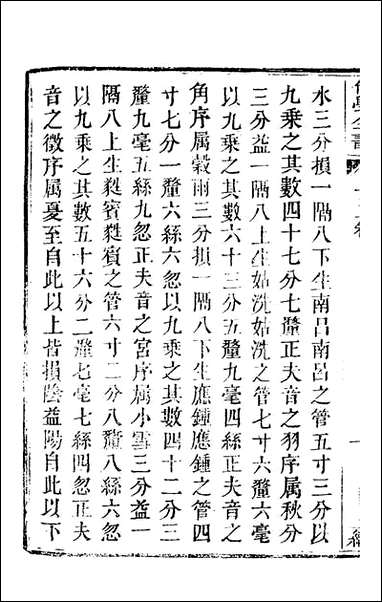 水三分損一隔八下生南呂南呂之管五寸三分以
九乘之其數四十七分七釐正夫音之羽序属秋分
三分益一隔八上生姑洗姑洗之管七寸六釐六毫
以九乘之其數六十三分五釐九毫四絲正夫音之
角序属穀雨三分損一隔八下生應鍾應鍾之管四
寸七分一釐六絲六忽以九乘之其數四十二分三
釐九毫五絲九忽正夫音之宮序属小雪三分益一
隔八上生蕤賓蕤賓之管六寸二分八釐八絲六忽
以九乘之其數五十六分二釐七毫七絲四忽正夫
音之徵序属夏至自此以上皆損陰益陽自此以下